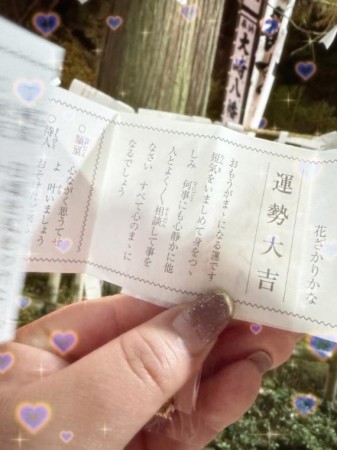 花ざかりかな
運勢大吉
おもうがまゝになる運です
短気をいましめて身をつゝ
しみ 何事にも心静かに他
人とよく〱相談して事を
なさい すべて心のまゝに
なるでしょう
○願望 心ながく思うて
よ 叶いましよう
○待人 おそ
大崎八幡